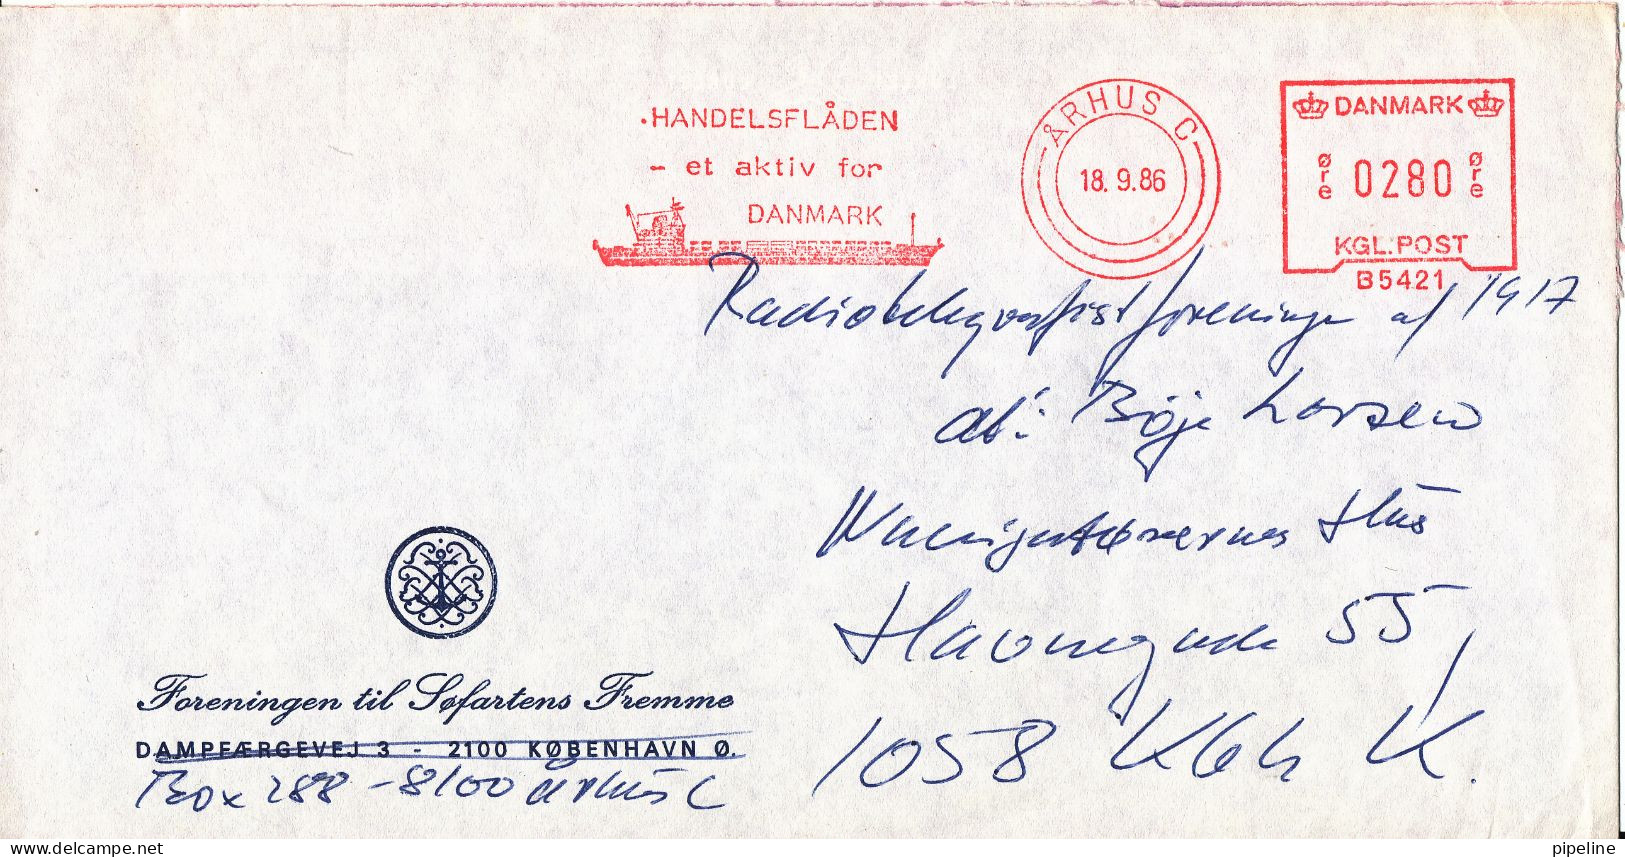 ·HANDELSFLÅDEN
- et aktiv for
DANMARK
ÅRHUS C
18. 9.86
DANMARK
øre 0280 øre
KGL. POST
B5421
Radiotelegrafistforeningen af 1917
att: Bøje Larsen
Navigatørernes Hus
Havnegade 55
1058 Kbh K.
Foreningen til Søfartens Fremme
DAMPFÆRGEVEJ 3 - 2100 KØBENHAVN Ø.
Box 288 - 8100 Århus C
delcampe.net
pipeline